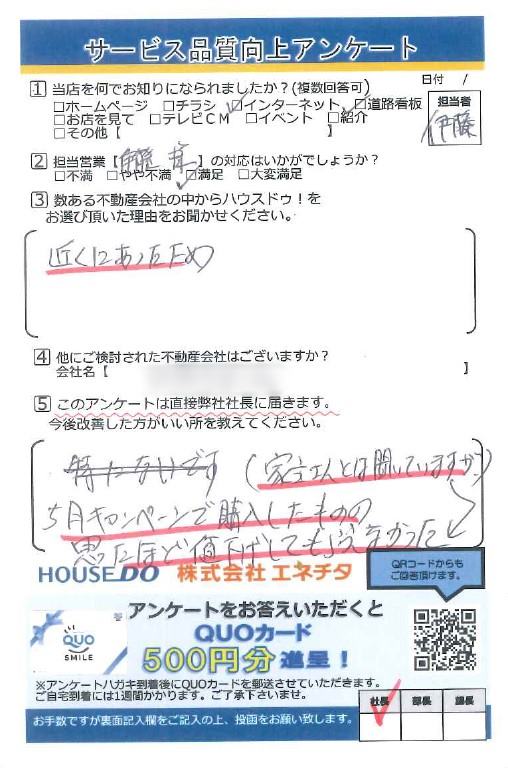 サービス品質向上アンケート
日付 /
1 当店を何でお知りになられましたか？(複数回答可)
□ホームページ □チラシ ☑インターネット ☑道路看板
□お店を見て □テレビCM □イベント □紹介
□その他【 】
担当者
伊藤
2 担当営業【 】の対応はいかがでしょうか？
□不満 □やや不満 ☑満足 □大変満足
3 数ある不動産会社の中からハウスドゥ！を
お選び頂いた理由をお聞かせください。
近くにあったため
4 他にご検討された不動産会社はございますか？
会社名【 】
5 このアンケートは直接弊社社長に届きます。
今後改善した方がいい所を教えてください。
特にないです (家主さんとは聞いていますが)
5月キャンペーンで購入したものの
思ったほど値下げしてもらえなかった
HOUSEDO 株式会社 エネチタ
QRコードからも
ご回答頂けます。
アンケートをお答えいただくと
QUOカード
500円分 進呈！
QUO
SMILE
※アンケートハガキ到着後にQUOカードを郵送させていただきます。
ご自宅到着には1週間かかります。ご了承下さいませ。
お手数ですが裏面記入欄をご記入の上、投函をお願い致します。
社長 部長 課長